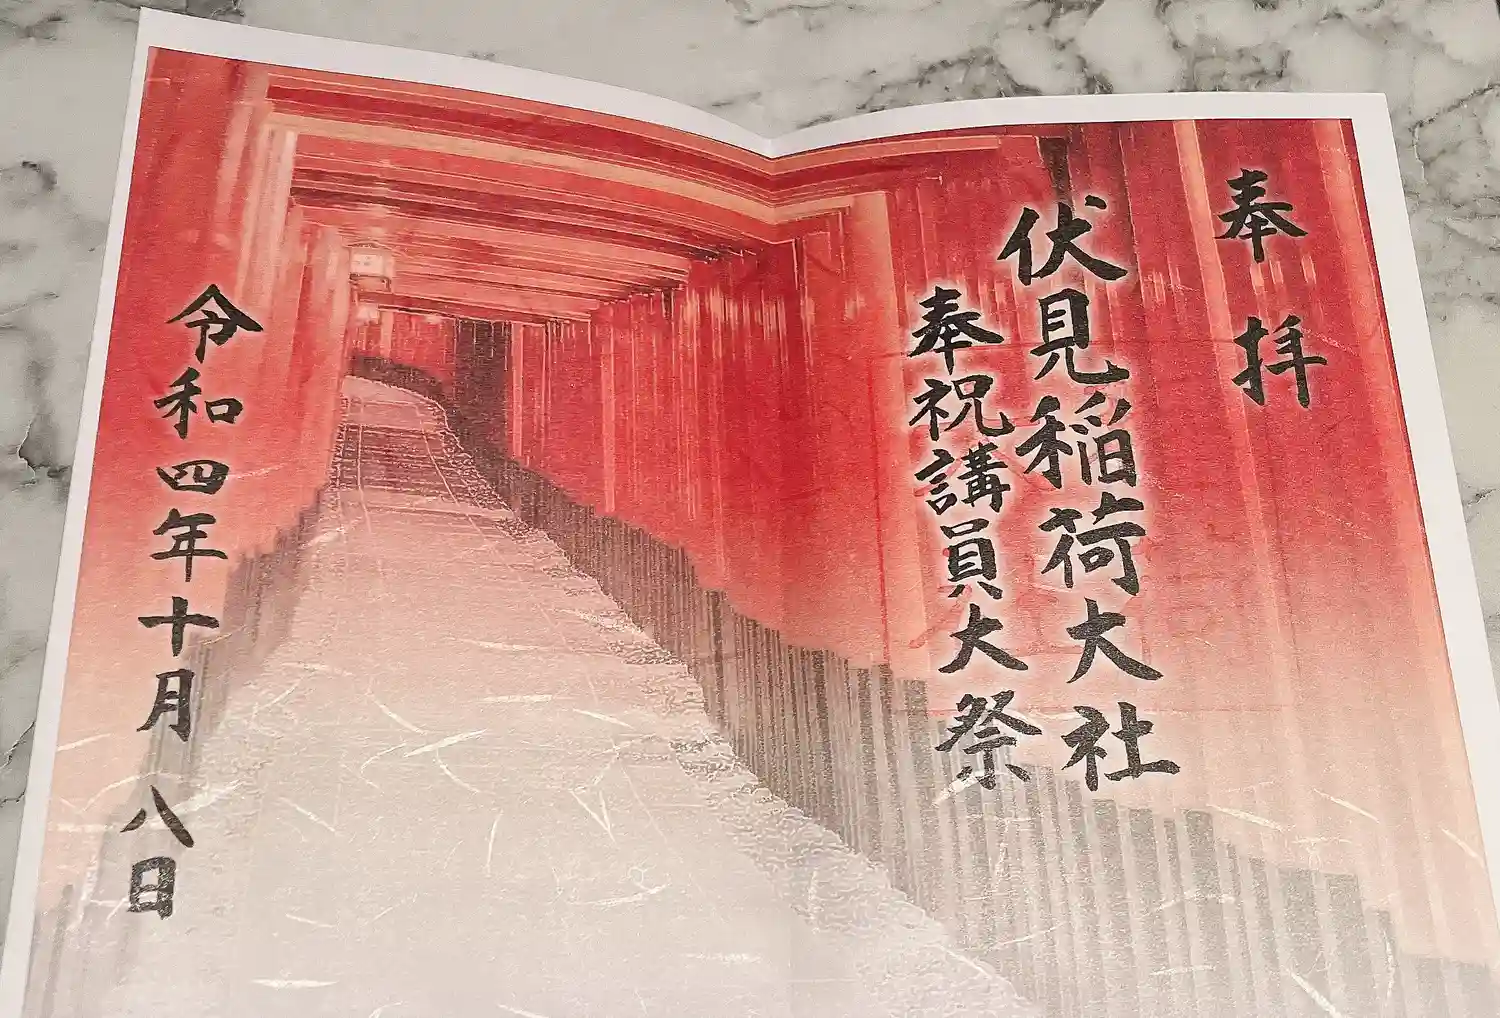 奉拝
伏見稲荷大社
奉祝講員大祭
令和四年十月八日